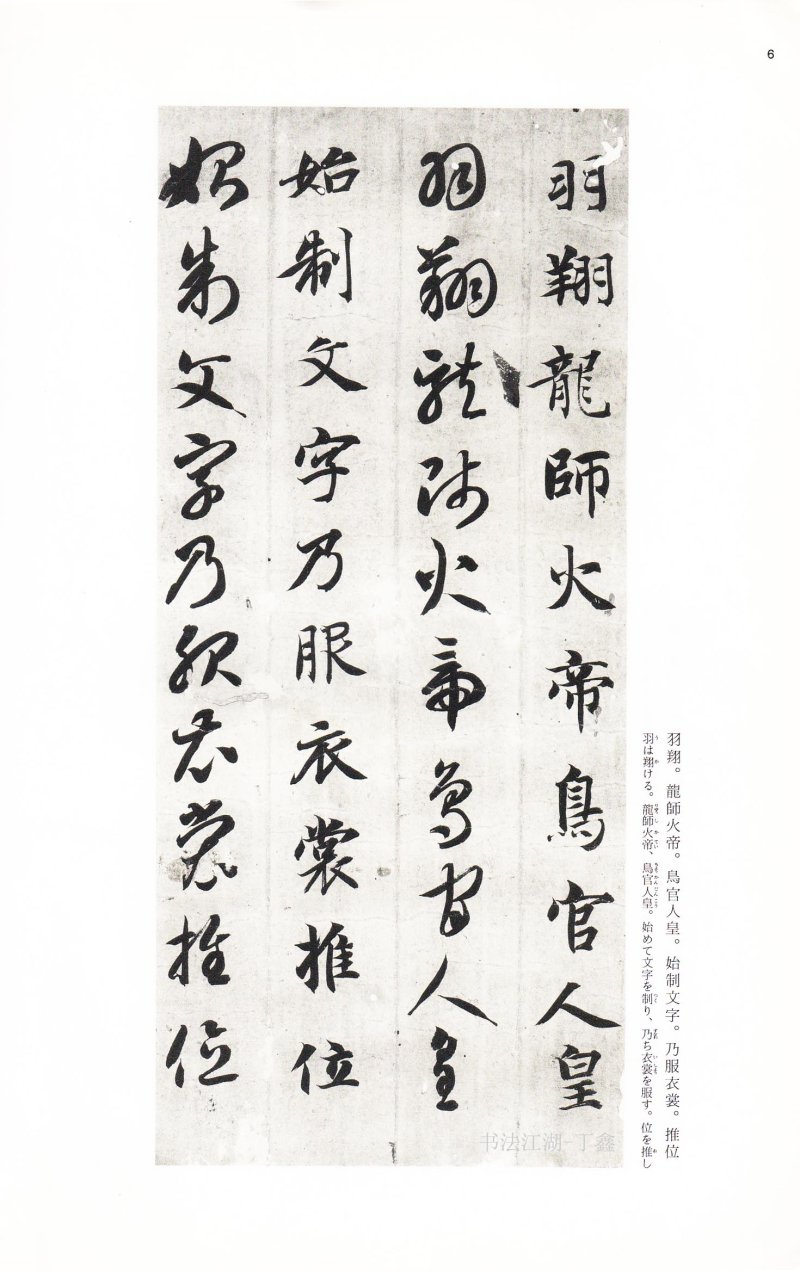 6
羽翔龍師火帝鳥官人皇
羽翔龍師火帝鳥官人皇
始制文字乃服衣裳推位
始制文字乃服衣裳推位
羽翔。龍師火帝。鳥官人皇。始制文字。乃服衣裳。推位
羽は翔ける。龍師火帝、鳥官人皇。始めて文字を制り、乃ち衣裳を服す。位を推し
书法江湖-丁鑫